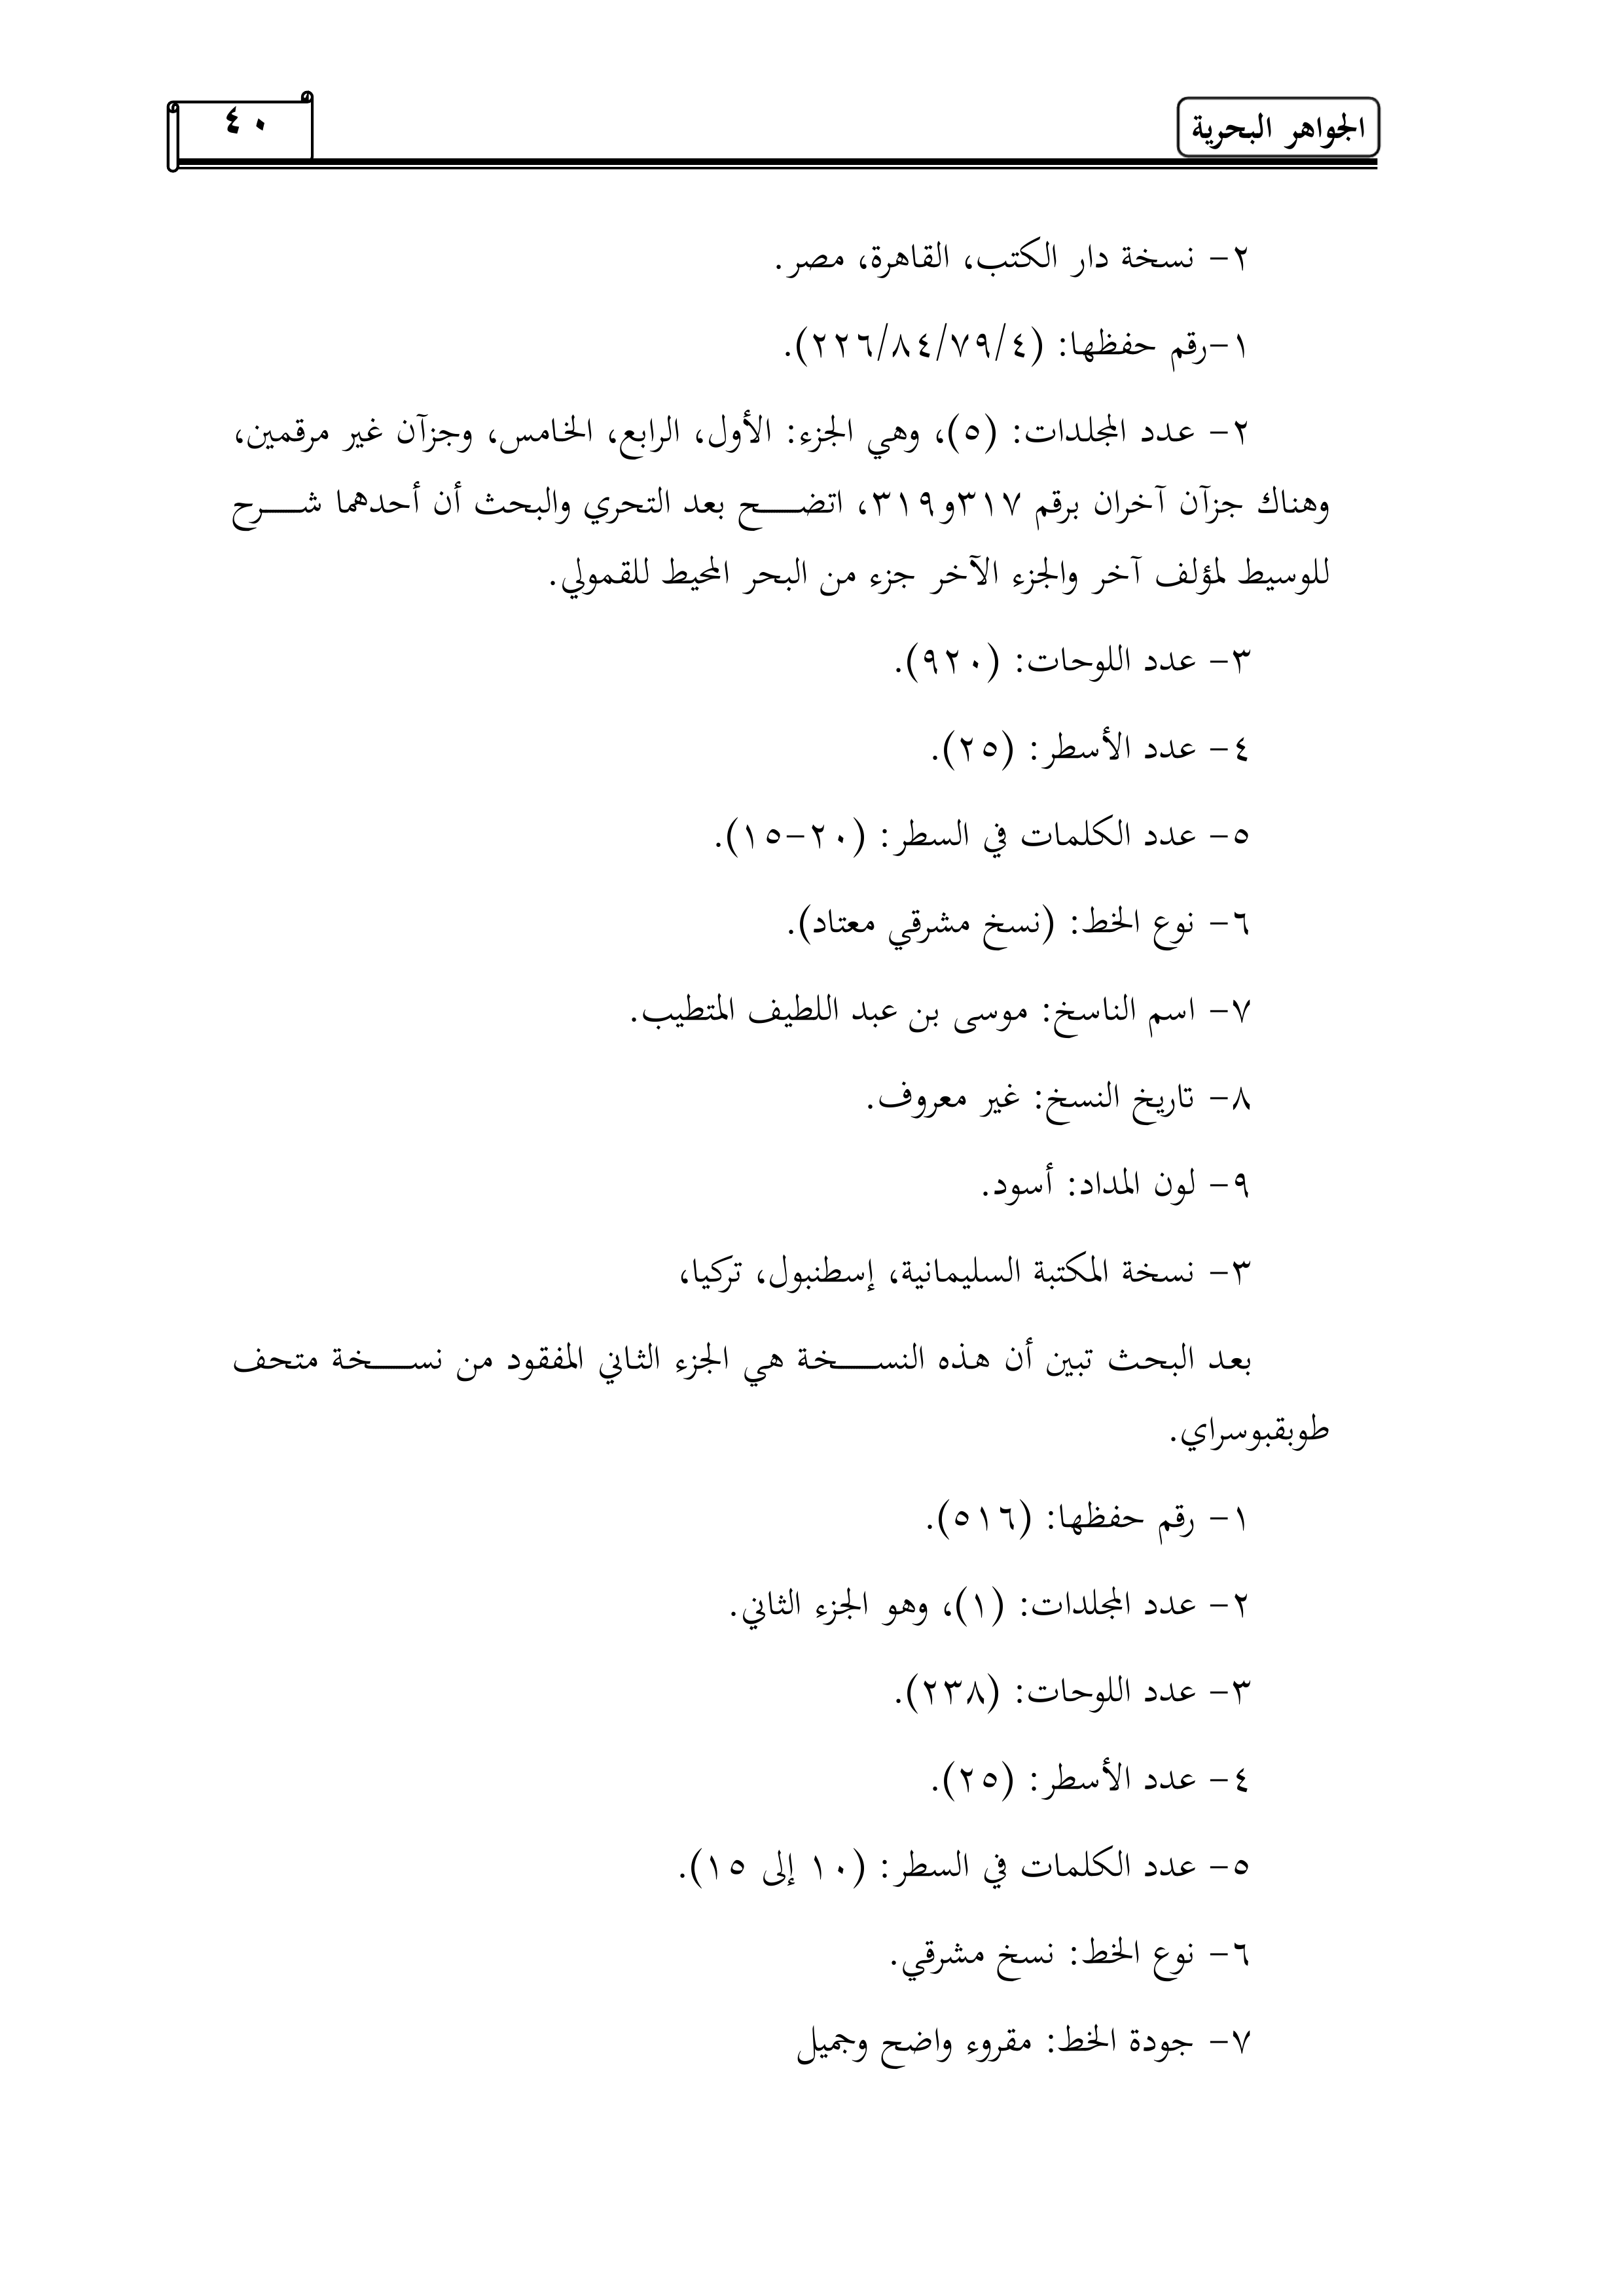 الجواهر البحرية
٤٠
٢- نسخة دار الكتب، القاهرة، مصر.
١-رقم حفظها: (٢٢٦/٨٤/٧٩/٤).
٢- عدد المجلدات: (٥)، وهي الجزء: الأول، الرابع، الخامس، وجزآن غير مرقمين،
وهناك جزآن آخران برقم ٣١٧و٣١٩، اتضح بعد التحري والبحث أن أحدهما شرح
للوسيط لمؤلف آخر والجزء الآخر جزء من البحر المحيط للقمولي.
٣- عدد اللوحات: (٩٢٠).
٤- عدد الأسطر: (٢٥).
٥- عدد الكلمات في السطر: (٢٠-١٥).
٦- نوع الخط: (نسخ مشرقي معتاد).
٧- اسم الناسخ: موسى بن عبد اللطيف المتطيب.
٨- تاريخ النسخ: غير معروف.
٩- لون المداد: أسود.
٣- نسخة المكتبة السليمانية، إسطنبول، تركيا،
بعد البحث تبين أن هذه النسخة هي الجزء الثاني المفقود من نسخة متحف
طوبقبوسراي.
١- رقم حفظها: (٥١٦).
٢- عدد المجلدات: (١)، وهو الجزء الثاني.
٣- عدد اللوحات: (٢٣٨).
٤- عدد الأسطر: (٢٥).
٥- عدد الكلمات في السطر: (١٠ إلى ١٥).
٦- نوع الخط: نسخ مشرقي.
٧- جودة الخط: مقروء واضح وجميل